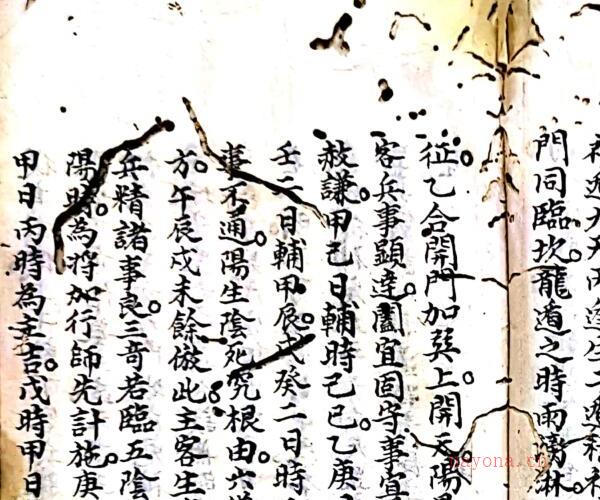 門同臨坎。龍遁之時雨
征。乙合開門加巽上。開天陽
客兵事顯達。闔宜固守事宜
赦謙。甲己日輔時己巳。乙庚
壬二日輔甲辰。戊癸二日時
事不通。陽生陰死究根由。六
方。午辰戌未餘倣此。主客生
兵精諸事良。三奇若臨五陰
陽時。為將加行師先計施。庚
甲日丙時為主吉。戊時甲日
nayona.cn